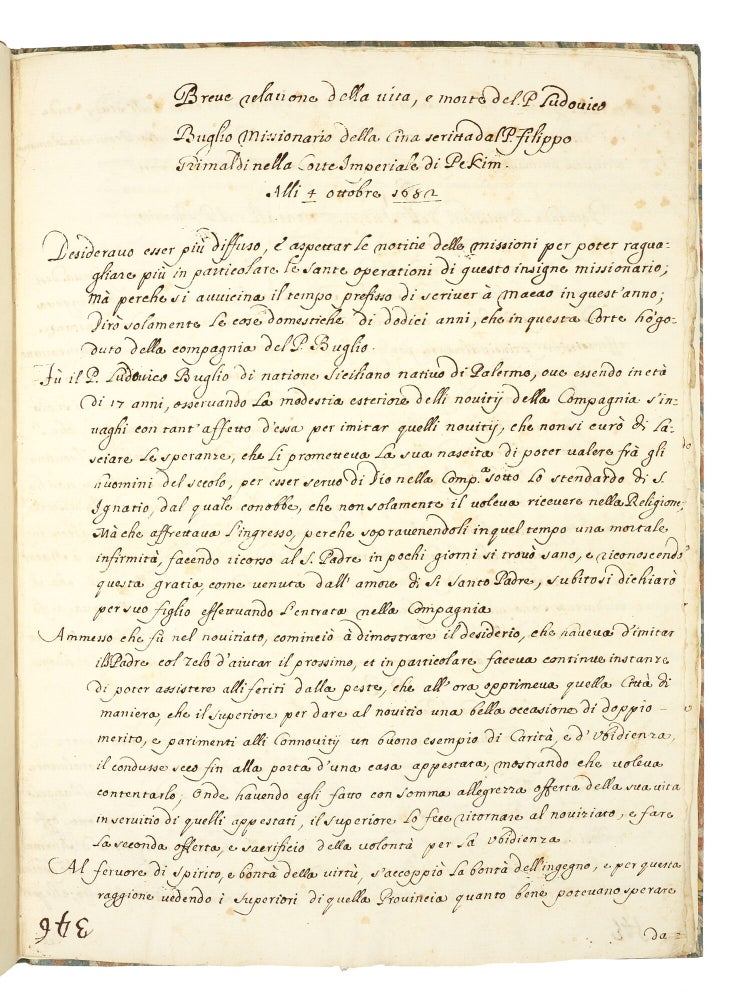 Breve relatione della vita, e morte del P. Ludovico
Buglio Missionario della Cina scritta dal P. Filippo
Grimaldi nella Corte Imperiale di Pekim.
Alli 4 ottobre 1682
Desideravo esser più diffuso, è aspettar le notitie delle missioni per poter ragua-
gliare più in particolare le sante operationi di questo insigne missionario;
Mà perche si avvicina il tempo prefisso di scriver à Macao in quest'anno;
Dirò solamente le cose domestiche di dodici anni, che in questa Corte hò go-
duto della compagnia del P. Buglio.
Fù il P. Ludovico Buglio di natione Siciliano nativo di Palermo, ove essendo in età
di 17 anni, osservando la modestia esteriore delli novitij della Compagnia s'in-
vaghì con tant'affetto d'essa per imitar quelli novitij, che non si curò di la-
sciare le speranze, che li prometteva la sua nascita di poter valere frà gli
huomini del secolo, per esser servo di Dio nella Comp.a sotto lo stendardo di S.
Ignatio, dal quale conobbe, che non solamente il voleva ricevere nella Religione;
Mà che affrettava l'ingresso, perche sopravenendoli in quel tempo una mortale
infirmità, facendo ricorso al S. Padre in pochi giorni si trovò sano, e riconoscendo
questa gratia, come venuta dall'amore di Si Santo Padre, subito si dichiarò
per suo figlio effettuando l'entrata nella Compagnia
Ammesso che fù nel novitiato, cominciò à dimostrare il desiderio, che haveva d'imitar
il Padre col zelo d'aiutar il prossimo, et in particolare faceva continue instanze
di poter assistere alli feriti dalla peste, che all'ora opprimeva quella Città di
maniera, che il superiore per dare al novitio una bella occasione di doppio -
merito, e parimenti alli Connovitij un buono esempio di Carità, e d'Ubidienza,
il condusse seco fin alla porta d'una casa appestata, mostrando che voleva
contentarlo; Onde havendo egli fatto con somma allegrezza offerta della sua vita
in servitio di quelli appestati, il superiore lo fece ritornare al noviziato, e fare
la seconda offerta, e sacrificio della volontà per la Ubidienza.
Al fervore di spirito, e bontà della virtù, s'accoppiò la bontà dell'ingegno, e per questa
raggione vedendo i Superiori di quella Provincia quanto bene potevano sperare
da
346